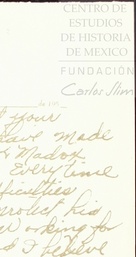 CENTRO DE
ESTUDIOS
DE HISTORIA
DE MEXICO
FUNDACIÓN
Carlos Slim
your
have made
Madox
Every time
difficulties
protect his
working for
I believe